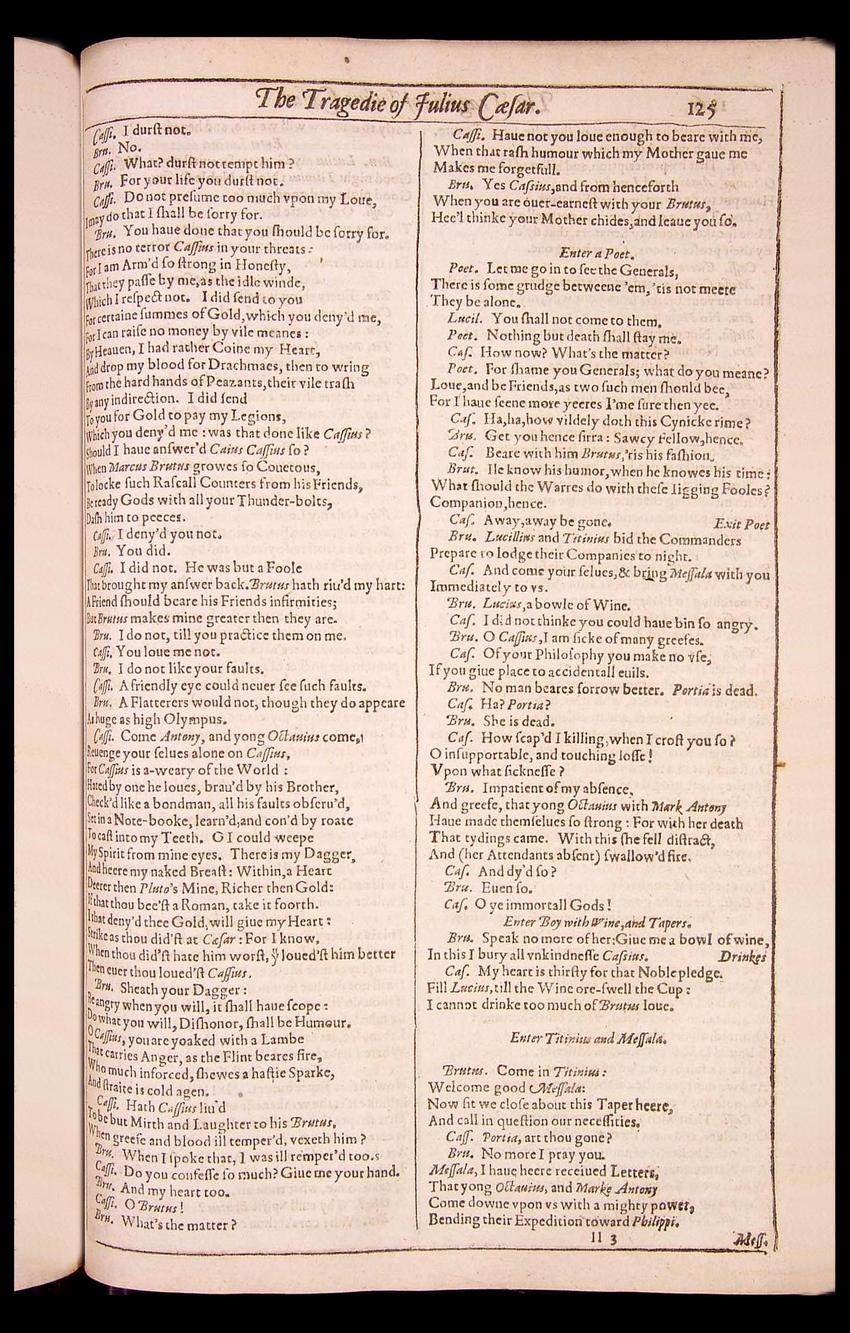 The Tragedie of Julius Cæſar.
125
Caſſi. I durſt not.
Bru. No.
Caſſi. What? durſt not tempt him?
Bru. For your life you durſt not.
Caſſi. Do not preſume too much vpon my Loue,
I may do that I ſhall be ſorry for.
Bru. You haue done that you ſhould be ſorry for.
There is no terror Caſſius in your threats:
For I am Arm'd ſo ſtrong in Honeſty,
That they paſſe by me, as the idle winde,
Which I reſpect not. I did ſend to you
For certaine ſummes of Gold, which you deny'd me,
For I can raiſe no money by vile meanes:
By Heauen, I had rather Coine my Heart,
And drop my blood for Drachmaes, then to wring
From the hard hands of Peazants, their vile traſh
By any indirection. I did ſend
To you for Gold to pay my Legions,
Which you deny'd me: was that done like Caſſius?
Should I haue anſwer'd Caius Caſſius ſo?
When Marcus Brutus growes ſo Couetous,
To locke ſuch Raſcall Counters from his Friends,
Be ready Gods with all your Thunder-bolts,
Daſh him to peeces.
Caſſi. I deny'd you not.
Bru. You did.
Caſſi. I did not. He was but a Foole
That brought my anſwer back. Brutus hath riu'd my hart:
A Friend ſhould beare his Friends infirmities;
But Brutus makes mine greater then they are.
Bru. I do not, till you practice them on me.
Caſſi. You loue me not.
Bru. I do not like your faults.
Caſſi. A friendly eye could neuer ſee ſuch faults.
Bru. A Flatterers would not, though they do appeare
As huge as high Olympus.
Caſſi. Come Antony, and yong Octauius come,
Reuenge your ſelues alone on Caſſius,
For Caſſius is a-weary of the World:
Hated by one he loues, brau'd by his Brother,
Check'd like a bondman, all his faults obſeru'd,
Set in a Note-booke, learn'd, and con'd by roate
To caſt into my Teeth. O I could weepe
My Spirit from mine eyes. There is my Dagger,
And heere my naked Breaſt: Within, a Heart
Deerer then Pluto's Mine, Richer then Gold:
If that thou bee'ſt a Roman, take it foorth.
I that deny'd thee Gold, will giue my Heart:
Strike as thou did'ſt at Cæſar: For I know,
When thou did'ſt hate him worſt, yͧ loued'ſt him better
Then euer thou loued'ſt Caſſius.
Bru. Sheath your Dagger:
Be angry when you will, it ſhall haue ſcope:
Do what you will, Diſhonor, ſhall be Humour.
O Caſſius, you are yoaked with a Lambe
That carries Anger, as the Flint beares fire,
Who much inforced, ſhewes a haſtie Sparke,
And ſtraite is cold agen.
Caſſi. Hath Caſſius liu'd
To be but Mirth and Laughter to his Brutus,
When greefe and blood ill temper'd, vexeth him?
Bru. When I ſpoke that, I was ill temper'd too.
Caſſi. Do you confeſſe ſo much? Giue me your hand.
Bru. And my heart too.
Caſſi. O Brutus!
Bru. What's the matter?
Caſſi. Haue not you loue enough to beare with me,
When that raſh humour which my Mother gaue me
Makes me forgetfull.
Bru. Yes Caſſius, and from henceforth
When you are ouer-earneſt with your Brutus,
Hee'l thinke your Mother chides, and leaue you ſo.
Enter a Poet.
Poet. Let me go in to ſee the Generals,
There is ſome grudge betweene 'em, 'tis not meete
They be alone.
Lucil. You ſhall not come to them.
Poet. Nothing but death ſhall ſtay me.
Caſ. How now? What's the matter?
Poet. For ſhame you Generals; what do you meane?
Loue, and be Friends, as two ſuch men ſhould bee,
For I haue ſeene more yeeres I'me ſure then yee.
Caſ. Ha, ha, how vildely doth this Cynicke rime?
Bru. Get you hence ſirra: Sawcy Fellow, hence.
Caſ. Beare with him Brutus, 'tis his faſhion.
Brut. Ile know his humor, when he knowes his time:
What ſhould the Warres do with theſe Iigging Fooles?
Companion, hence.
Caſ. Away, away be gone. Exit Poet
Bru. Lucillius and Titinius bid the Commanders
Prepare to lodge their Companies to night.
Caſ. And come your ſelues, & bring Meſſala with you
Immediately to vs.
Bru. Lucius, a bowle of Wine.
Caſ. I did not thinke you could haue bin ſo angry.
Bru. O Caſſius, I am ſicke of many greefes.
Caſ. Of your Philoſophy you make no vſe,
If you giue place to accidentall euils.
Bru. No man beares ſorrow better. Portia is dead.
Caſ. Ha? Portia?
Bru. She is dead.
Caſ. How ſcap'd I killing, when I croſt you ſo?
O inſupportable, and touching loſſe!
Vpon what ſickneſſe?
Bru. Impatient of my abſence,
And greefe, that yong Octauius with Mark Antony
Haue made themſelues ſo ſtrong: For with her death
That tydings came. With this ſhe fell diſtract,
And (her Attendants abſent) ſwallow'd fire.
Caſ. And dy'd ſo?
Bru. Euen ſo.
Caſ. O ye immortall Gods!
Enter Boy with Wine, and Tapers.
Bru. Speak no more of her: Giue me a bowl of wine,
In this I bury all vnkindneſſe Caſſius. Drinkes
Caſ. My heart is thirſty for that Noble pledge.
Fill Lucius, till the Wine ore-ſwell the Cup:
I cannot drinke too much of Brutus loue.
Enter Titinius and Meſſala.
Brutus. Come in Titinius:
Welcome good Meſſala:
Now ſit we cloſe about this Taper heere,
And call in queſtion our neceſſities.
Caſſ. Portia, art thou gone?
Bru. No more I pray you.
Meſſala, I haue heere receiued Letters,
That yong Octauius, and Marke Antony
Come downe vpon vs with a mighty power,
Bending their Expedition toward Philippi.
ll 3
Meſſ.